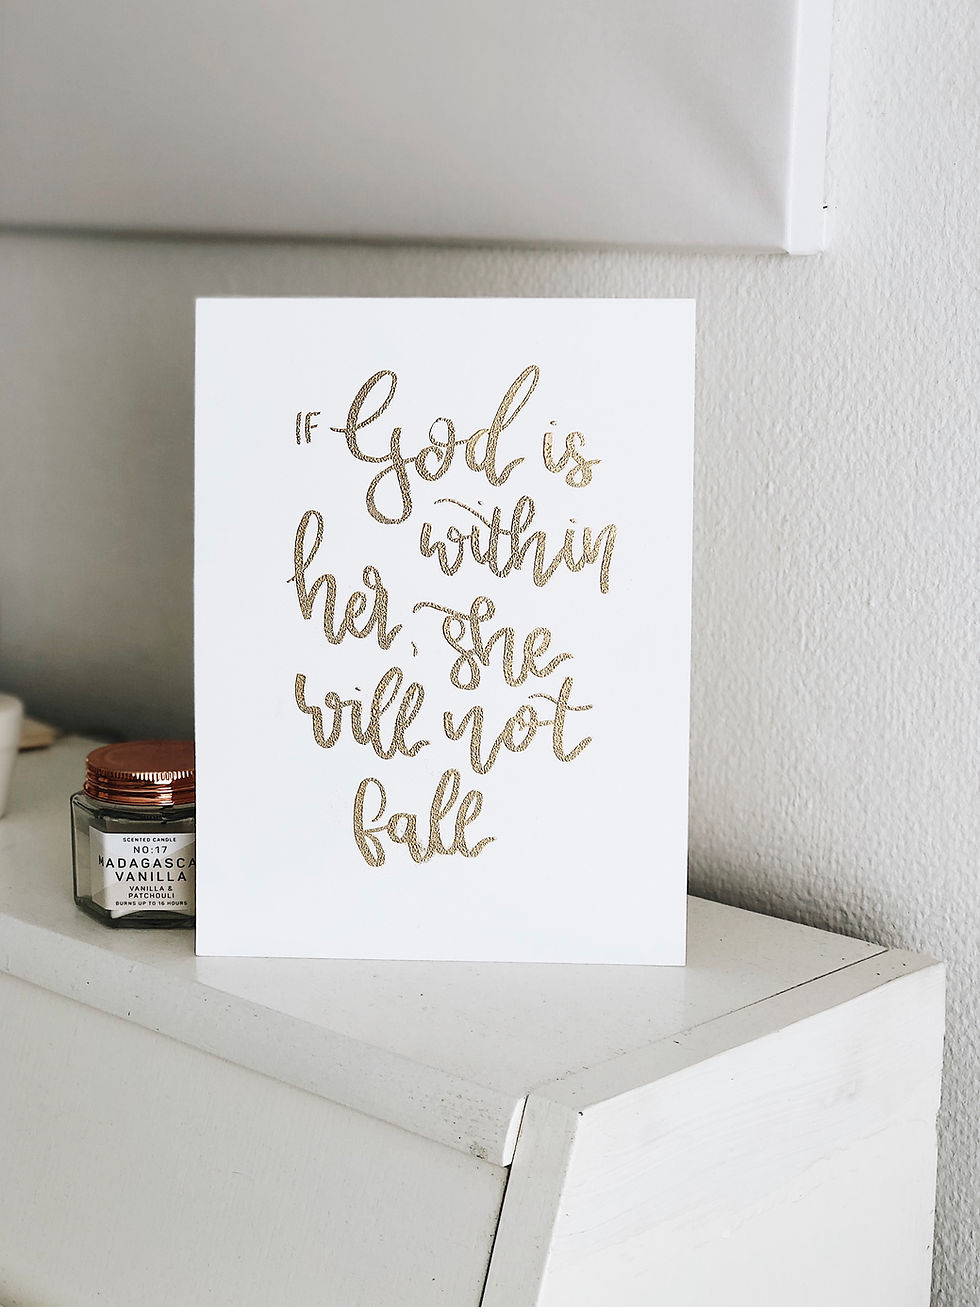 IF God is
within
her, she
will not
fall
SCENTED CANDLE
NO:17
MADAGASCA
VANILLA
VANILLA &
PATCHOULI
BURNS UP TO 16 HOURS